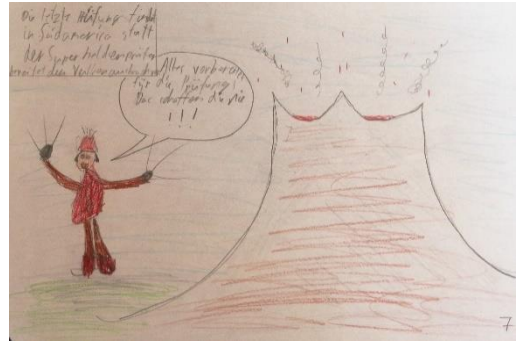 Die letzte Prüfung findet
in Südamerica statt
der Superheldenprüfer
bereitet den Vulkanausbruch vor
Alles vorbereitet
für die Prüfung!
Das schaffen die nie
!!!
7